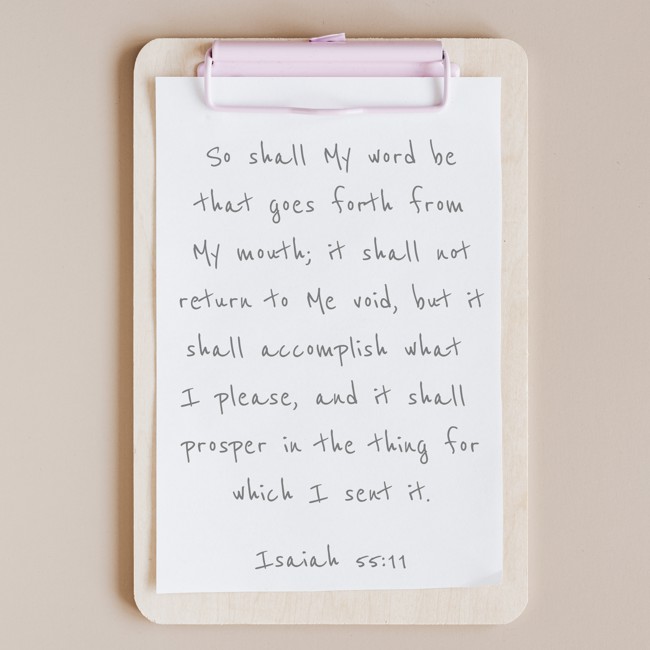 So shall My word be
that goes forth from
My mouth; it shall not
return to Me void, but it
shall accomplish what
I please, and it shall
prosper in the thing for
which I sent it.
Isaiah 55:11